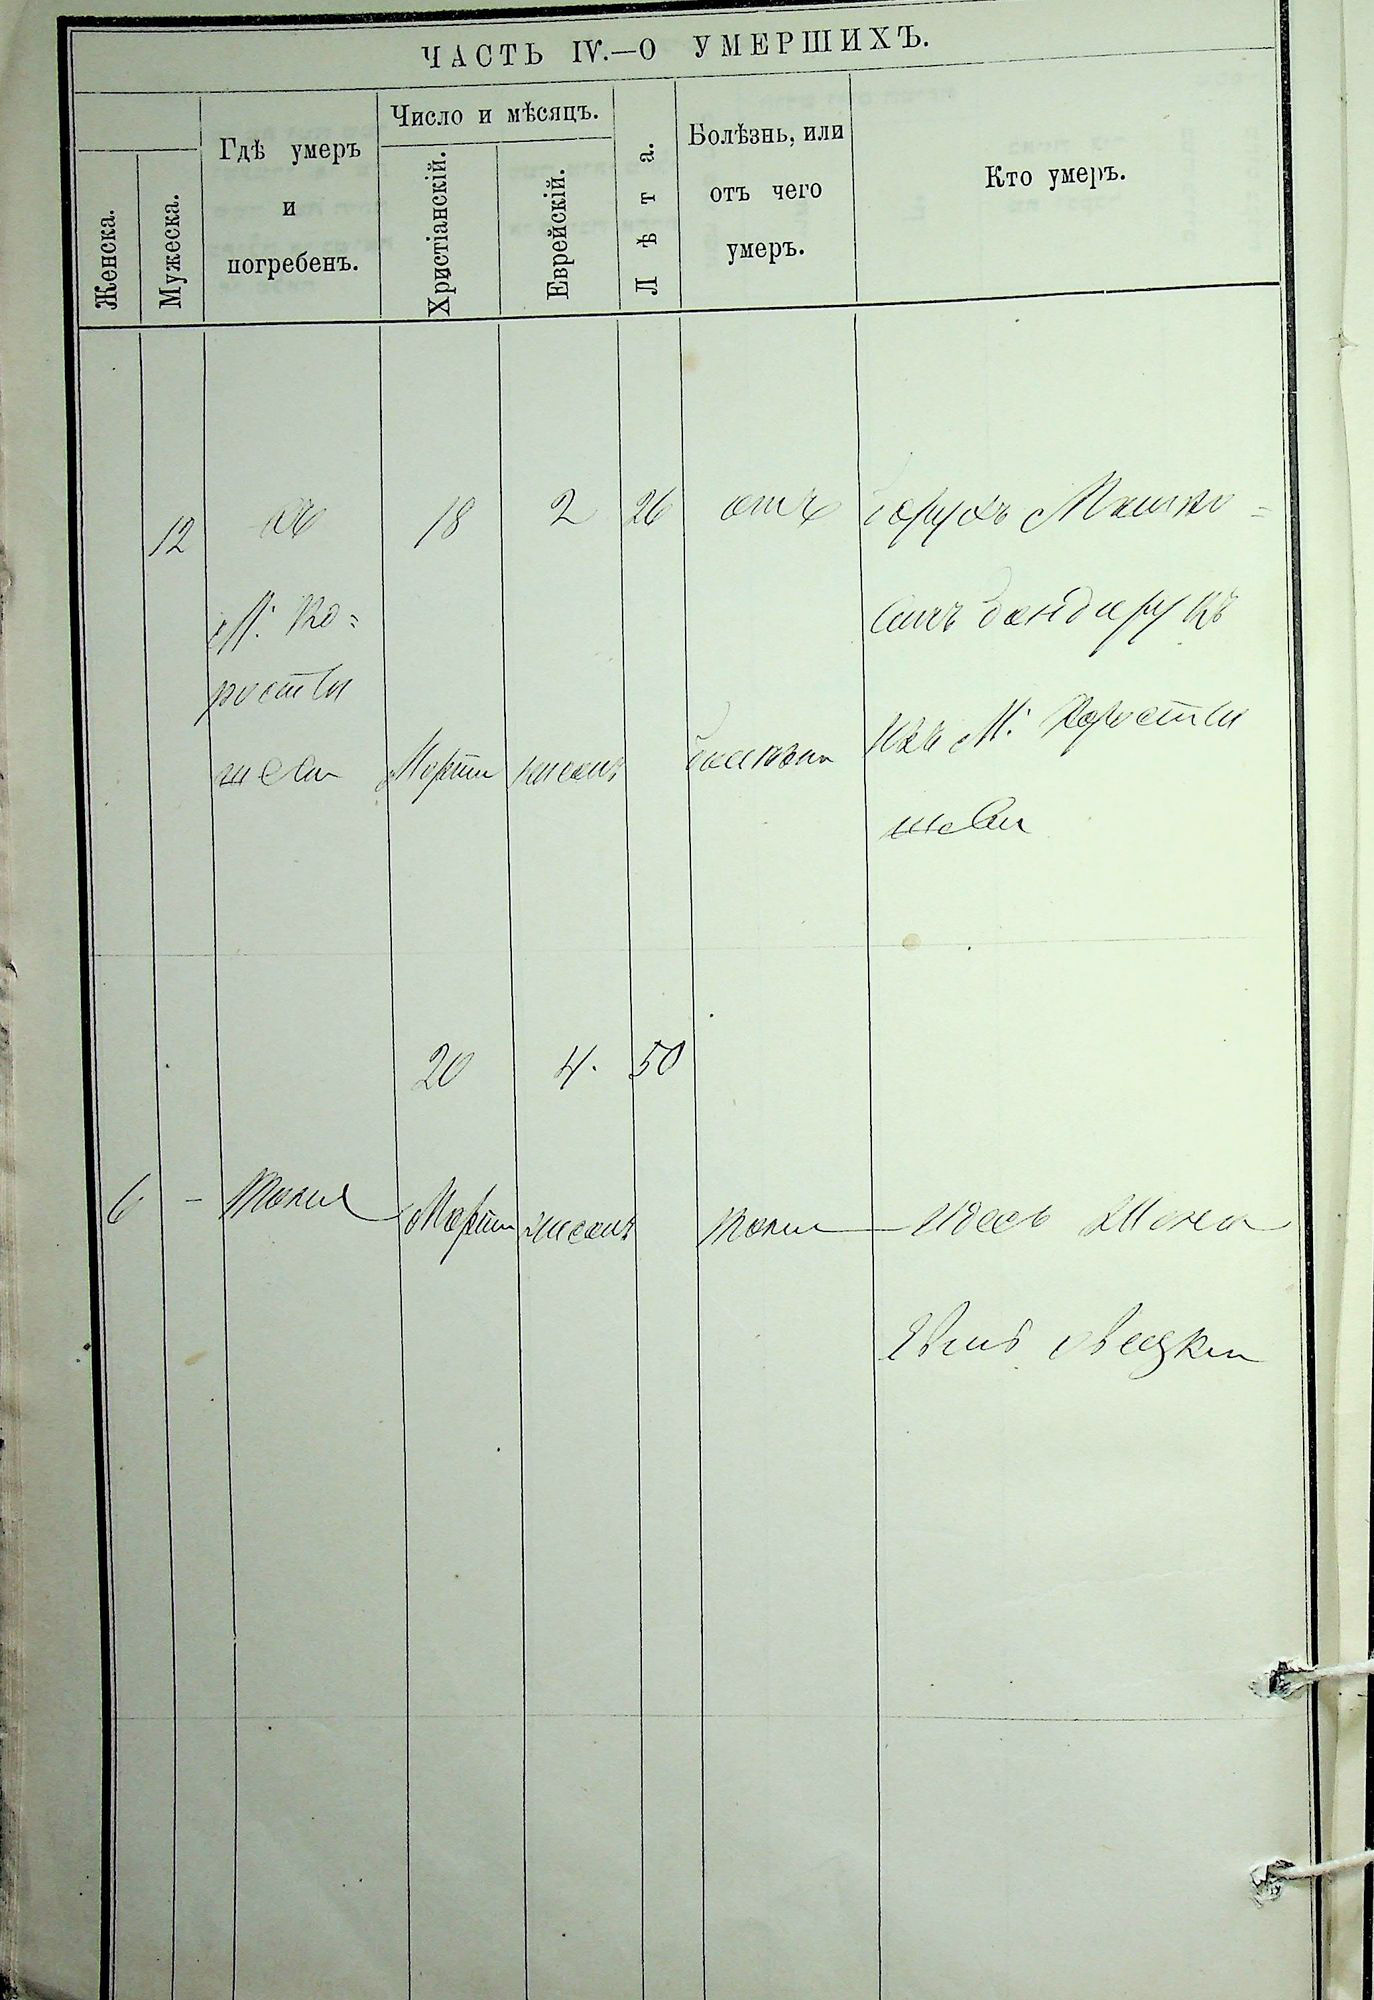 ЧАСТЬ IV.—О УМЕРШИХЪ.
Женска.
Мужеска.
Гдѣ умеръ
и
погребенъ.
Число и мѣсяцъ.
Христіанскій.
Еврейскій.
Лѣта.
Болѣзнь, или
отъ чего
умеръ.
Кто умеръ.
12
въ
М. Ко=
рости
шеви
18
Марта
2
нисанъ
26
отъ
борухъ Машко=
бандарукъ
изъ М. Корости
шеви
6
-
тоже
20
Марта
4.
нисанъ
50
тоже